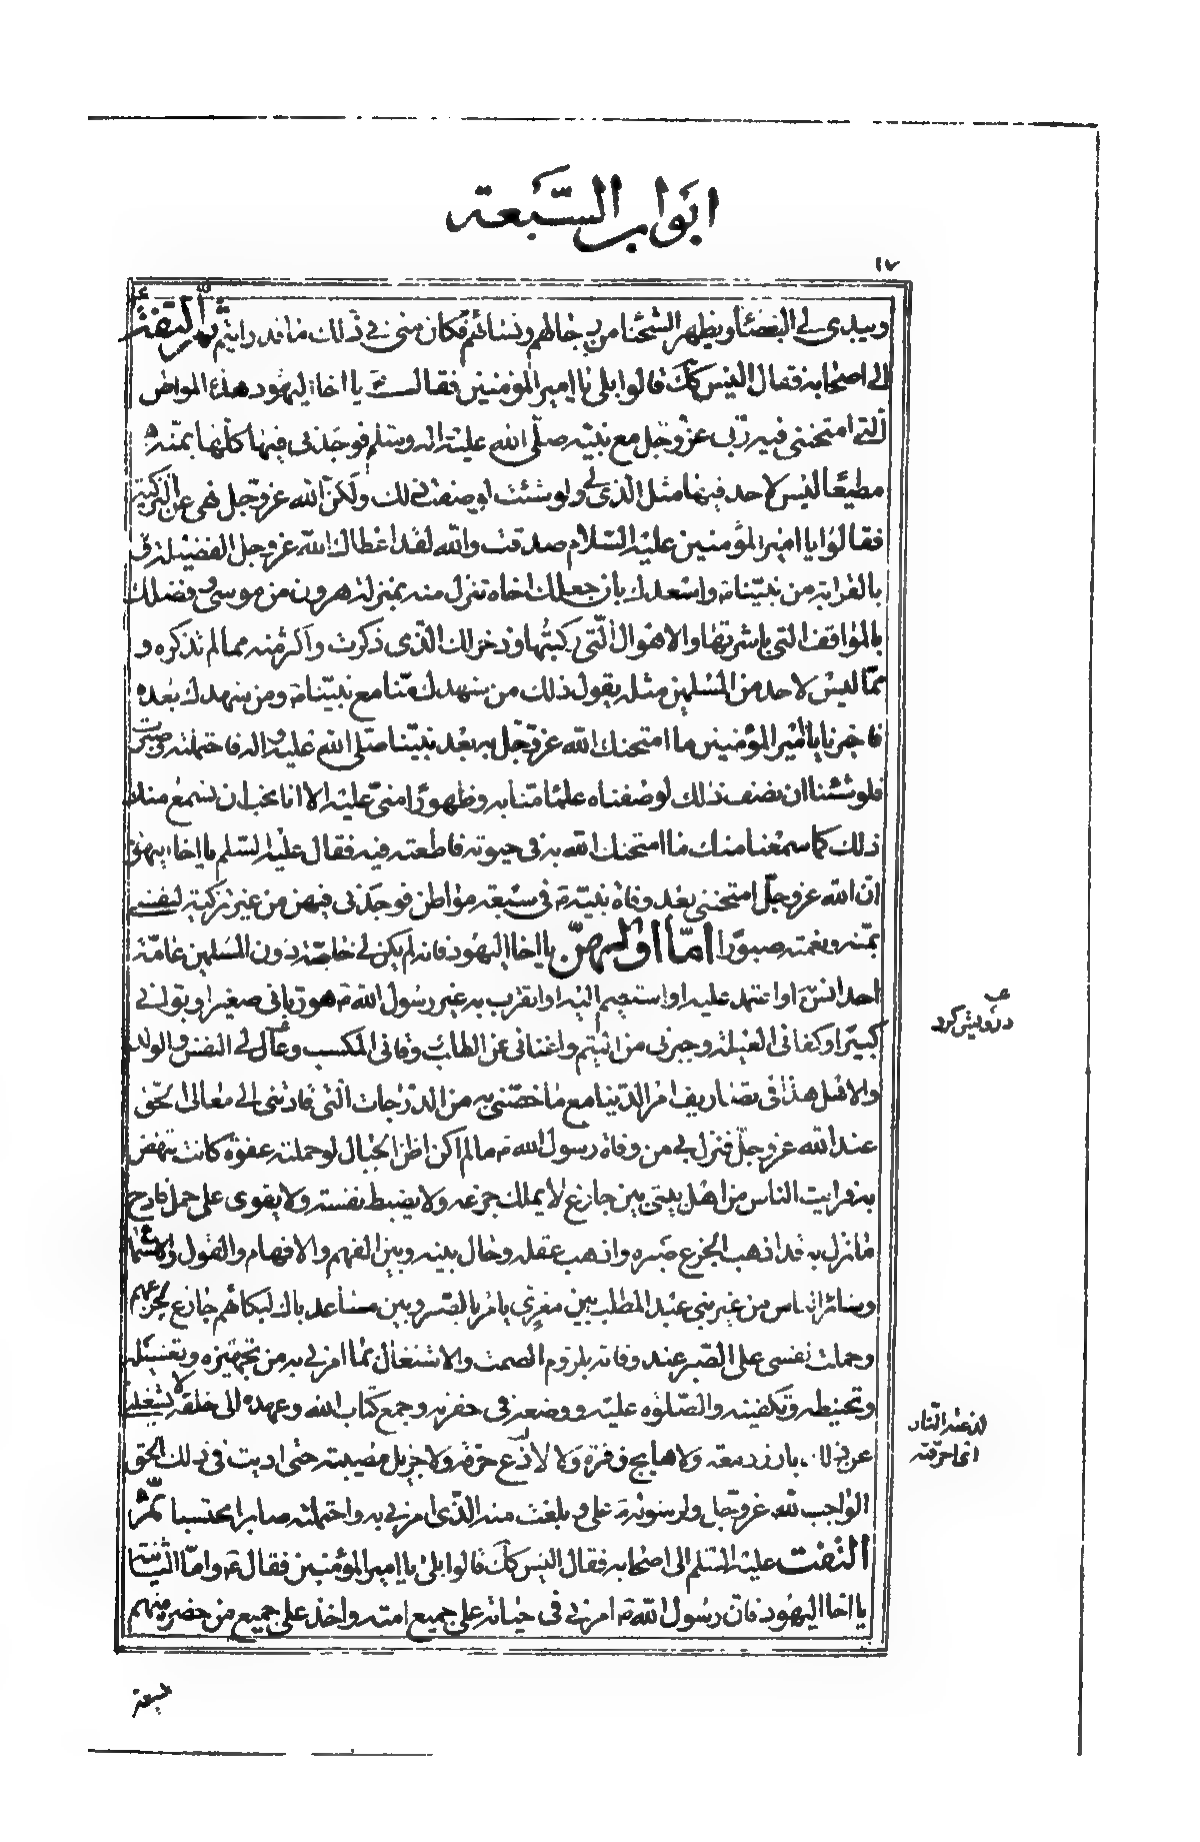 ابواب السبعة
١٧
ويبدى لى البغضاء ويظهر الشحنا من رجالهم ونسائهم فكان منى فى ذلك ما قد رايتم ثم التفت ع
الى اصحابه فقال اليس كك قالوا بلى يا امير المؤمنين فقال ع يا اخا اليهود هذه المواطن
التى امتحننى فيه ربى عز وجل مع نبيه صلى الله عليه واله وسلم فوجدنى فيها كلها بمنه
مطيعا ليس لاحد فيها مثل الذى لى ولو شئت لوصفت ذلك ولكن الله عز وجل نهى عن التزكية
فقالوا يا امير المؤمنين عليه السلام صدقت والله لقد اعطاك الله عز وجل الفضيلة
بالقرابة من نبينا ص واسعدك بان جعلك اخاه تنزل منه بمنزلة هرون من موسى وفضلك
بالمواقف التى باشرتها والاهوال التى ركبتها وذخر لك الذى ذكرت واكثر منه مما لم تذكره و
مما ليس لاحد من المسلمين مثله يقول ذلك من شهدك منا مع نبينا ص ومن شهدك بعده
فاخبرنا يا امير المؤمنين ما امتحنك الله عز وجل به بعد نبينا صلى الله عليه واله فاحتملته وصبرت
فلو شئنا ان نصف ذلك لوصفناه علما منا به وظهورا منى عليه الا انا نحب ان نسمع منك
ذلك كما سمعنا منك ما امتحنك الله به فى حيوته فاطعته فيه فقال عليه السلم يا اخا اليهود
ان الله عز وجل امتحننى بعد وفاة نبيه ص فى سبعة مواطن فوجدنى فيهن من غير تزكية لنفسى
بمنه ونعمته صبورا اما اولهن يا اخا اليهود فانه لم يكن لى خاصة دون المسلمين عامة
احد انس او اعتمد عليه او استنيم اليه او اتقرب به غير رسول الله ص هو ربانى صغيرا وبوانى
كبيرا وكفانى العيلة وجبرنى من اليتم واغنانى عن الطلب ووقانى المكسب وعال لى النفس والولد
والاهل هذا فى تصاريف امر الدنيا مع ما خصنى به من الدرجات التى قادتنى الى معالى الحق
عند الله عز وجل فنزل بى من وفاة رسول الله ص ما لم اكن اظن الجبال لو حملته عفوة كانت تنهض
به فرايت الناس من اهل بيتى بين جازع لا يملك جزعه ولا يضبط نفسه ولا يقوى على حمل فادح
ما نزل به قد اذهب الجزع صبره واذهب عقله وحال بينه وبين الفهم والافهام والقول والاستماع
وسائر الناس من غير بنى عبد المطلب بين معزى يامر بالصبر وبين مساعد باك لبكائهم جازع لجزعهم
وحملت نفسى على الصبر عند وفاته بلزوم الصمت والاشتغال بما امرنى به من تجهيزه وتغسيله
وتحنيطه وتكفينه والصلوة عليه ووضعه فى حفرته وجمع كتاب الله وعهده الى خلقه لا يشغلنى
عن ذلك بادر دمعة ولا هايج زفرة ولا لاذع حرقة ولا جزيل مصيبة حتى اديت فى ذلك الحق
الواجب لله عز وجل ولرسوله ص على وبلغت منه الذى امرنى به واحتملته صابرا محتسبا ثم
التفت عليه السلم الى اصحابه فقال اليس كك قالوا بلى يا امير المؤمنين فقال ع واما الثانية
يا اخا اليهود فان رسول الله ص امرنى فى حياته على جميع امته واخذ على جميع من حضره منهم
درويش كرد
لذعته النار
اى احرقته